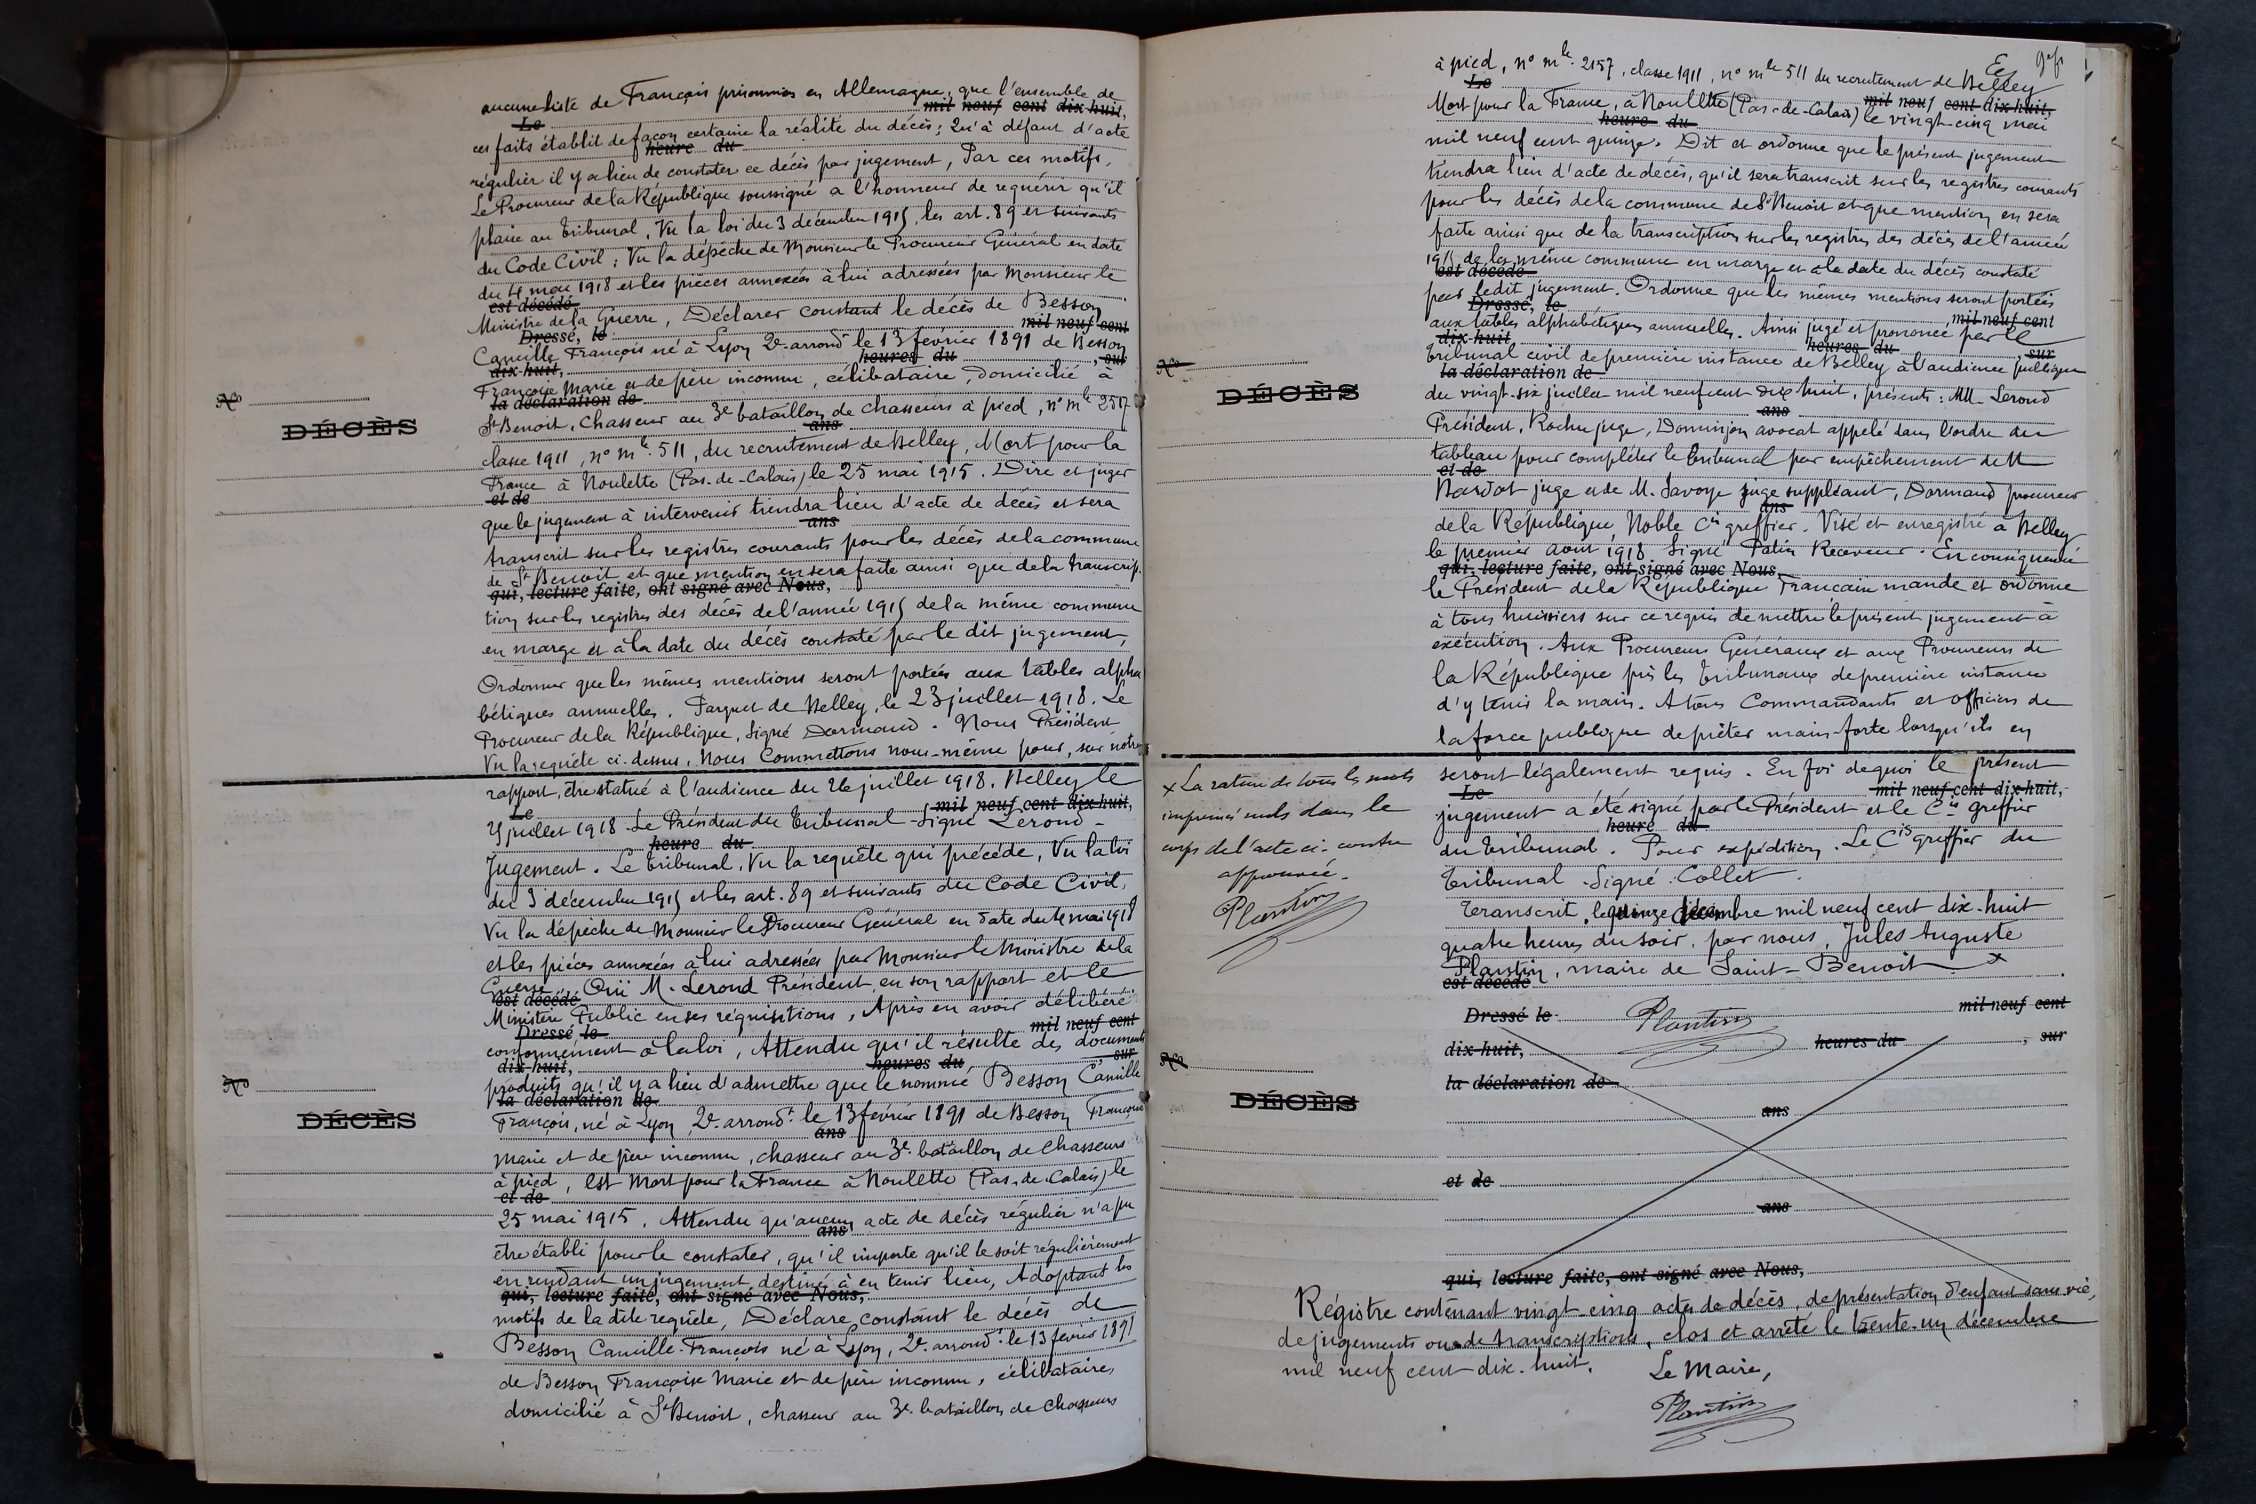 aucune liste de Français prisonniers en Allemagne, que l'ensemble de
mil neuf cent dix-huit,
Le
ces faits établit de façon certaine la réalité du décès ; Qu'à défaut d'acte
heure du
régulier il y a lieu de constater ce décès par jugement, Par ces motifs,
Le Procureur de la République soussigné a l'honneur de requérir qu'il
plaise au Tribunal, Vu la loi du 3 décembre 1915, les art. 89 et suivants
du Code Civil ; Vu la dépêche de Monsieur le Procureur Général en date
du 4 mai 1918 et les pièces annexées à lui adressées par Monsieur le
est décédé
Ministre de la Guerre, Déclarer constant le décès de Besson
Dressé, le mil neuf cent
Camille François né à Lyon 2e arrondt le 13 février 1891 de Besson
dix-huit, heures du , sur
Françoise Marie et de père inconnu, célibataire, domicilié à
la déclaration de
St Benoit, Chasseur au 3e bataillon de chasseurs à pied, n° mle 2517
ans
classe 1911, n° mle 511, du recrutement de Belley, Mort pour la
France à Noulette (Pas-de-Calais) le 25 mai 1915. Dire et juger
et de
que le jugement à intervenir tiendra lieu d'acte de décès et sera
ans
transcrit sur les registres courants pour les décès de la commune
de St Benoit et que mention en sera faite ainsi que de la transcrip-
qui, lecture faite, ont signé avec Nous,
tion sur les registres des décès de l'année 1915 de la même commune
en marge et à la date du décès constaté par le dit jugement,
Ordonner que les mêmes mentions seront portées aux tables alpha
bétiques annuelles. Parquet de Belley, le 23 juillet 1918. Le
Procureur de la République, Signé Dormand. Nous Président
Vu la requête ci-dessus, Nous Commettons nous-même pour, sur notre
rapport, être statué à l'audience du 26 juillet 1918. Belley le
mil neuf cent dix-huit,
Le
25 juillet 1918 Le Président du Tribunal - Signé Lerond -
heure du
Jugement. Le Tribunal, Vu la requête qui précède, Vu la loi
du 3 décembre 1915 et les art. 89 et suivants du Code Civil,
Vu la dépêche de Monsieur le Procureur Général en date du 4 mai 1918
et les pièces annexées à lui adressées par Monsieur le Ministre de la
Guerre, Ouï M. Lerond Président, en son rapport et le
est décédé
Ministère Public en ses réquisitions, Après en avoir délibéré
Dressé le mil neuf cent
conformément à la loi, Attendu qu'il résulte des documents
dix-huit, heures du , sur
produits qu'il y a lieu d'admettre que le nommé Besson Camille
la déclaration de
François, né à Lyon, 2e arrondt le 13 février 1891 de Besson Françoise
ans
Marie et de père inconnu, chasseur au 3e bataillon de Chasseurs
à pied, est Mort pour la France à Noulette (Pas-de-Calais) le
et de
25 mai 1915. Attendu qu'aucun acte de décès régulier n'a pu
ans
être établi pour le constater, qu'il importe qu'il le soit régulièrement
en rendant un jugement destiné à en tenir lieu, Adoptant les
qui, lecture faite, ont signé avec Nous,
motifs de la dite requête, Déclare constant le décès de
Besson Camille-François né à Lyon, 2e arrondt le 13 février 1891
de Besson Françoise Marie et de père inconnu, célibataire,
domicilié à St Benoit, chasseur au 3e bataillon de chasseurs
N°
DÉCÈS
N°
DÉCÈS
à pied, n° mle 2157, classe 1911, n° mle 511 du recrutement de Belley
Le
mil neuf cent dix-huit,
Mort pour la France, à Noulette (Pas-de-Calais) le vingt-cinq mai
heure du
mil neuf cent quinze. Dit et ordonne que le présent jugement
tiendra lieu d'acte de décès, qu'il sera transcrit sur les registres courants
pour les décès de la commune de St Benoit et que mention en sera
faite ainsi que de la transcription sur les registres des décès de l'année
1915 de la même commune en marge et à la date du décès constaté
est décédé
par ledit jugement. Ordonne que les mêmes mentions seront portées
Dressé, le mil neuf cent
aux tables alphabétiques annuelles. Ainsi jugé et prononcé par le
dix-huit heures du , sur
Tribunal civil de première instance de Belley à l'audience publique
la déclaration de
du vingt-six juillet mil neuf cent dix huit, présents : MM Lerond
ans
Président, Rochu juge, Dominjon avocat appelé dans l'ordre du
tableau pour compléter le Tribunal par empêchement de M
et de
Nardot juge et de M. Savoye juge suppléant, Dormand procureur
ans
de la République, Noble Cis greffier. Visé et enregistré à Belley
le premier août 1918 Signé Patin Receveur. En conséquence
qui, lecture faite, ont signé avec Nous,
le Président de la République Française mande et ordonne
à tous huissiers sur ce requis de mettre le présent jugement à
exécution. Aux Procureurs Généraux et aux Procureurs de
la République près les Tribunaux de première instance
d'y tenir la main. A tous Commandants et officiers de
la force publique de prêter main-forte lorsqu'ils en
seront légalement requis. En foi de quoi le présent
Le mil neuf cent dix-huit,
jugement a été signé par le Président et le Cis greffier
heure du
du Tribunal. Pour expédition. Le Cis greffier du
Tribunal. Signé : Collet.
Transcrit, le quinze décembre mil neuf cent dix-huit
quatre heures du soir, par nous, Jules Auguste
Plantin, maire de Saint-Benoit. x
est décédé
Dressé le Plantin mil neuf cent
dix-huit, heures du , sur
la déclaration de
ans
et de
ans
qui, lecture faite, ont signé avec Nous,
N°
DÉCÈS
x La rature de tous les mots
imprimés nuls dans le
corps de l'acte ci-contre
approuvée.
Plantin
N°
DÉCÈS
Régistre contenant vingt-cinq actes de décès, de présentation d'enfant sans vie,
de jugements ou de transcriptions, clos et arrêté le trente-un décembre
mil neuf cent dix-huit. Le Maire,
Plantin